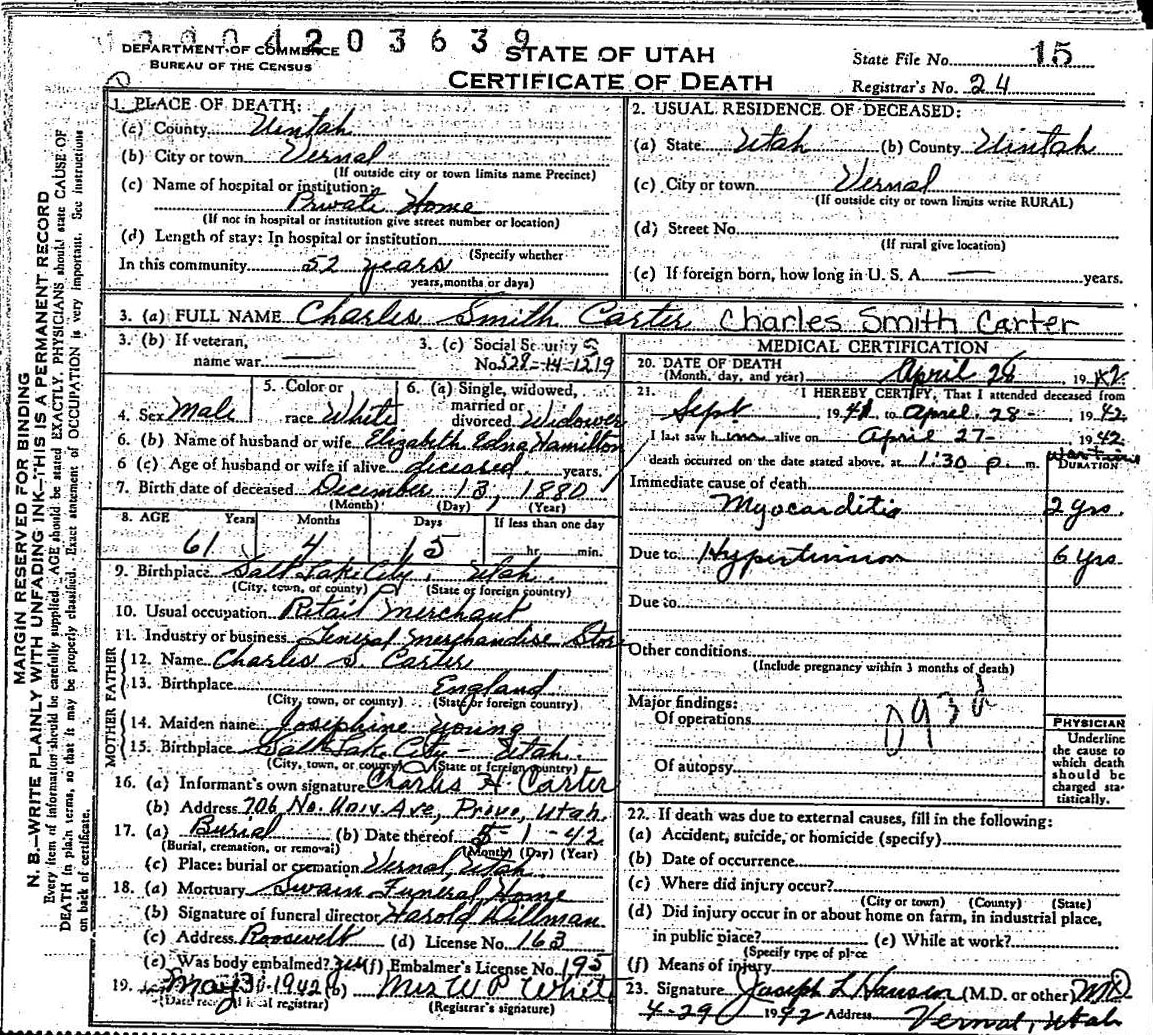 12904203639
DEPARTMENT OF COMMERCE
BUREAU OF THE CENSUS
STATE OF UTAH
CERTIFICATE OF DEATH
State File No. 15
Registrar's No. 24
MARGIN RESERVED FOR BINDING
N. B.—WRITE PLAINLY WITH UNFADING INK—THIS IS A PERMANENT RECORD
Every item of information should be carefully supplied. AGE should be stated EXACTLY. PHYSICIANS should state CAUSE OF
DEATH in plain terms, so that it may be properly classified. Exact statement of OCCUPATION is very important. See instructions
on back of certificate.
1. PLACE OF DEATH:
(a) County Uintah
(b) City or town Vernal
(If outside city or town limits name Precinct)
(c) Name of hospital or institution:
Private Home
(If not in hospital or institution give street number or location)
(d) Length of stay: In hospital or institution
(Specify whether
In this community 52 years
years, months or days)
2. USUAL RESIDENCE OF DECEASED:
(a) State Utah (b) County Uintah
(c) City or town Vernal
(If outside city or town limits write RURAL)
(d) Street No.
(If rural give location)
(e) If foreign born, how long in U. S. A. — years.
3. (a) FULL NAME Charles Smith Carter Charles Smith Carter
3. (b) If veteran,
name war —
3. (c) Social Security
No. 528-14-1219
4. Sex Male
5. Color or
race White
6. (a) Single, widowed,
married or
divorced Widower
6. (b) Name of husband or wife Elizabeth Edna Hamilton
6 (c) Age of husband or wife if alive deceased years.
7. Birth date of deceased December 13, 1880
(Month) (Day) (Year)
8. AGE Years Months Days If less than one day
61 4 15 hr. min.
9. Birthplace Salt Lake City, Utah.
(City, town, or county) (State or foreign country)
10. Usual occupation Retail Merchant
11. Industry or business General Merchandise Store
FATHER
12. Name Charles S. Carter
13. Birthplace England
(City, town, or county) (State or foreign country)
MOTHER
14. Maiden name Josephine Young
15. Birthplace Salt Lake City - Utah.
(City, town, or county) (State of foreign country)
16. (a) Informant's own signature Charles H. Carter
(b) Address 706 No. Univ. Ave, Provo, Utah.
17. (a) Burial (b) Date thereof 5-1-42
(Burial, cremation, or removal) (Month) (Day) (Year)
(c) Place: burial or cremation Vernal, Utah
18. (a) Mortuary Swain Funeral Home
(b) Signature of funeral director Harold Dillman
(c) Address Roosevelt (d) License No. 163
(e) Was body embalmed? yes (f) Embalmer's License No. 195
19. 1942 (b) Mrs W P White
(Date rec'd local registrar) (Registrar's signature)
MEDICAL CERTIFICATION
20. DATE OF DEATH
(Month, day, and year) April 28 1942
21. I HEREBY CERTIFY, That I attended deceased from
Sept 1941, to April 28- 1942
I last saw him alive on April 27- 1942
death occurred on the date stated above, at 1:30 p. m. war time
DURATION
Immediate cause of death
Myocarditis 2 yrs.
Due to Hypertension 6 yrs
Due to
Other conditions
(Include pregnancy within 3 months of death)
Major findings:
Of operations
Of autopsy
PHYSICIAN
Underline
the cause to
which death
should be
charged sta-
tistically.
22. If death was due to external causes, fill in the following:
(a) Accident, suicide, or homicide (specify)
(b) Date of occurrence
(c) Where did injury occur?
(City or town) (County) (State)
(d) Did injury occur in or about home on farm, in industrial place,
in public place? (e) While at work?
(Specify type of place
(f) Means of injury
23. Signature Joseph L Hansen (M.D. or other) MD
4-29 1942 Address Vernal, Utah